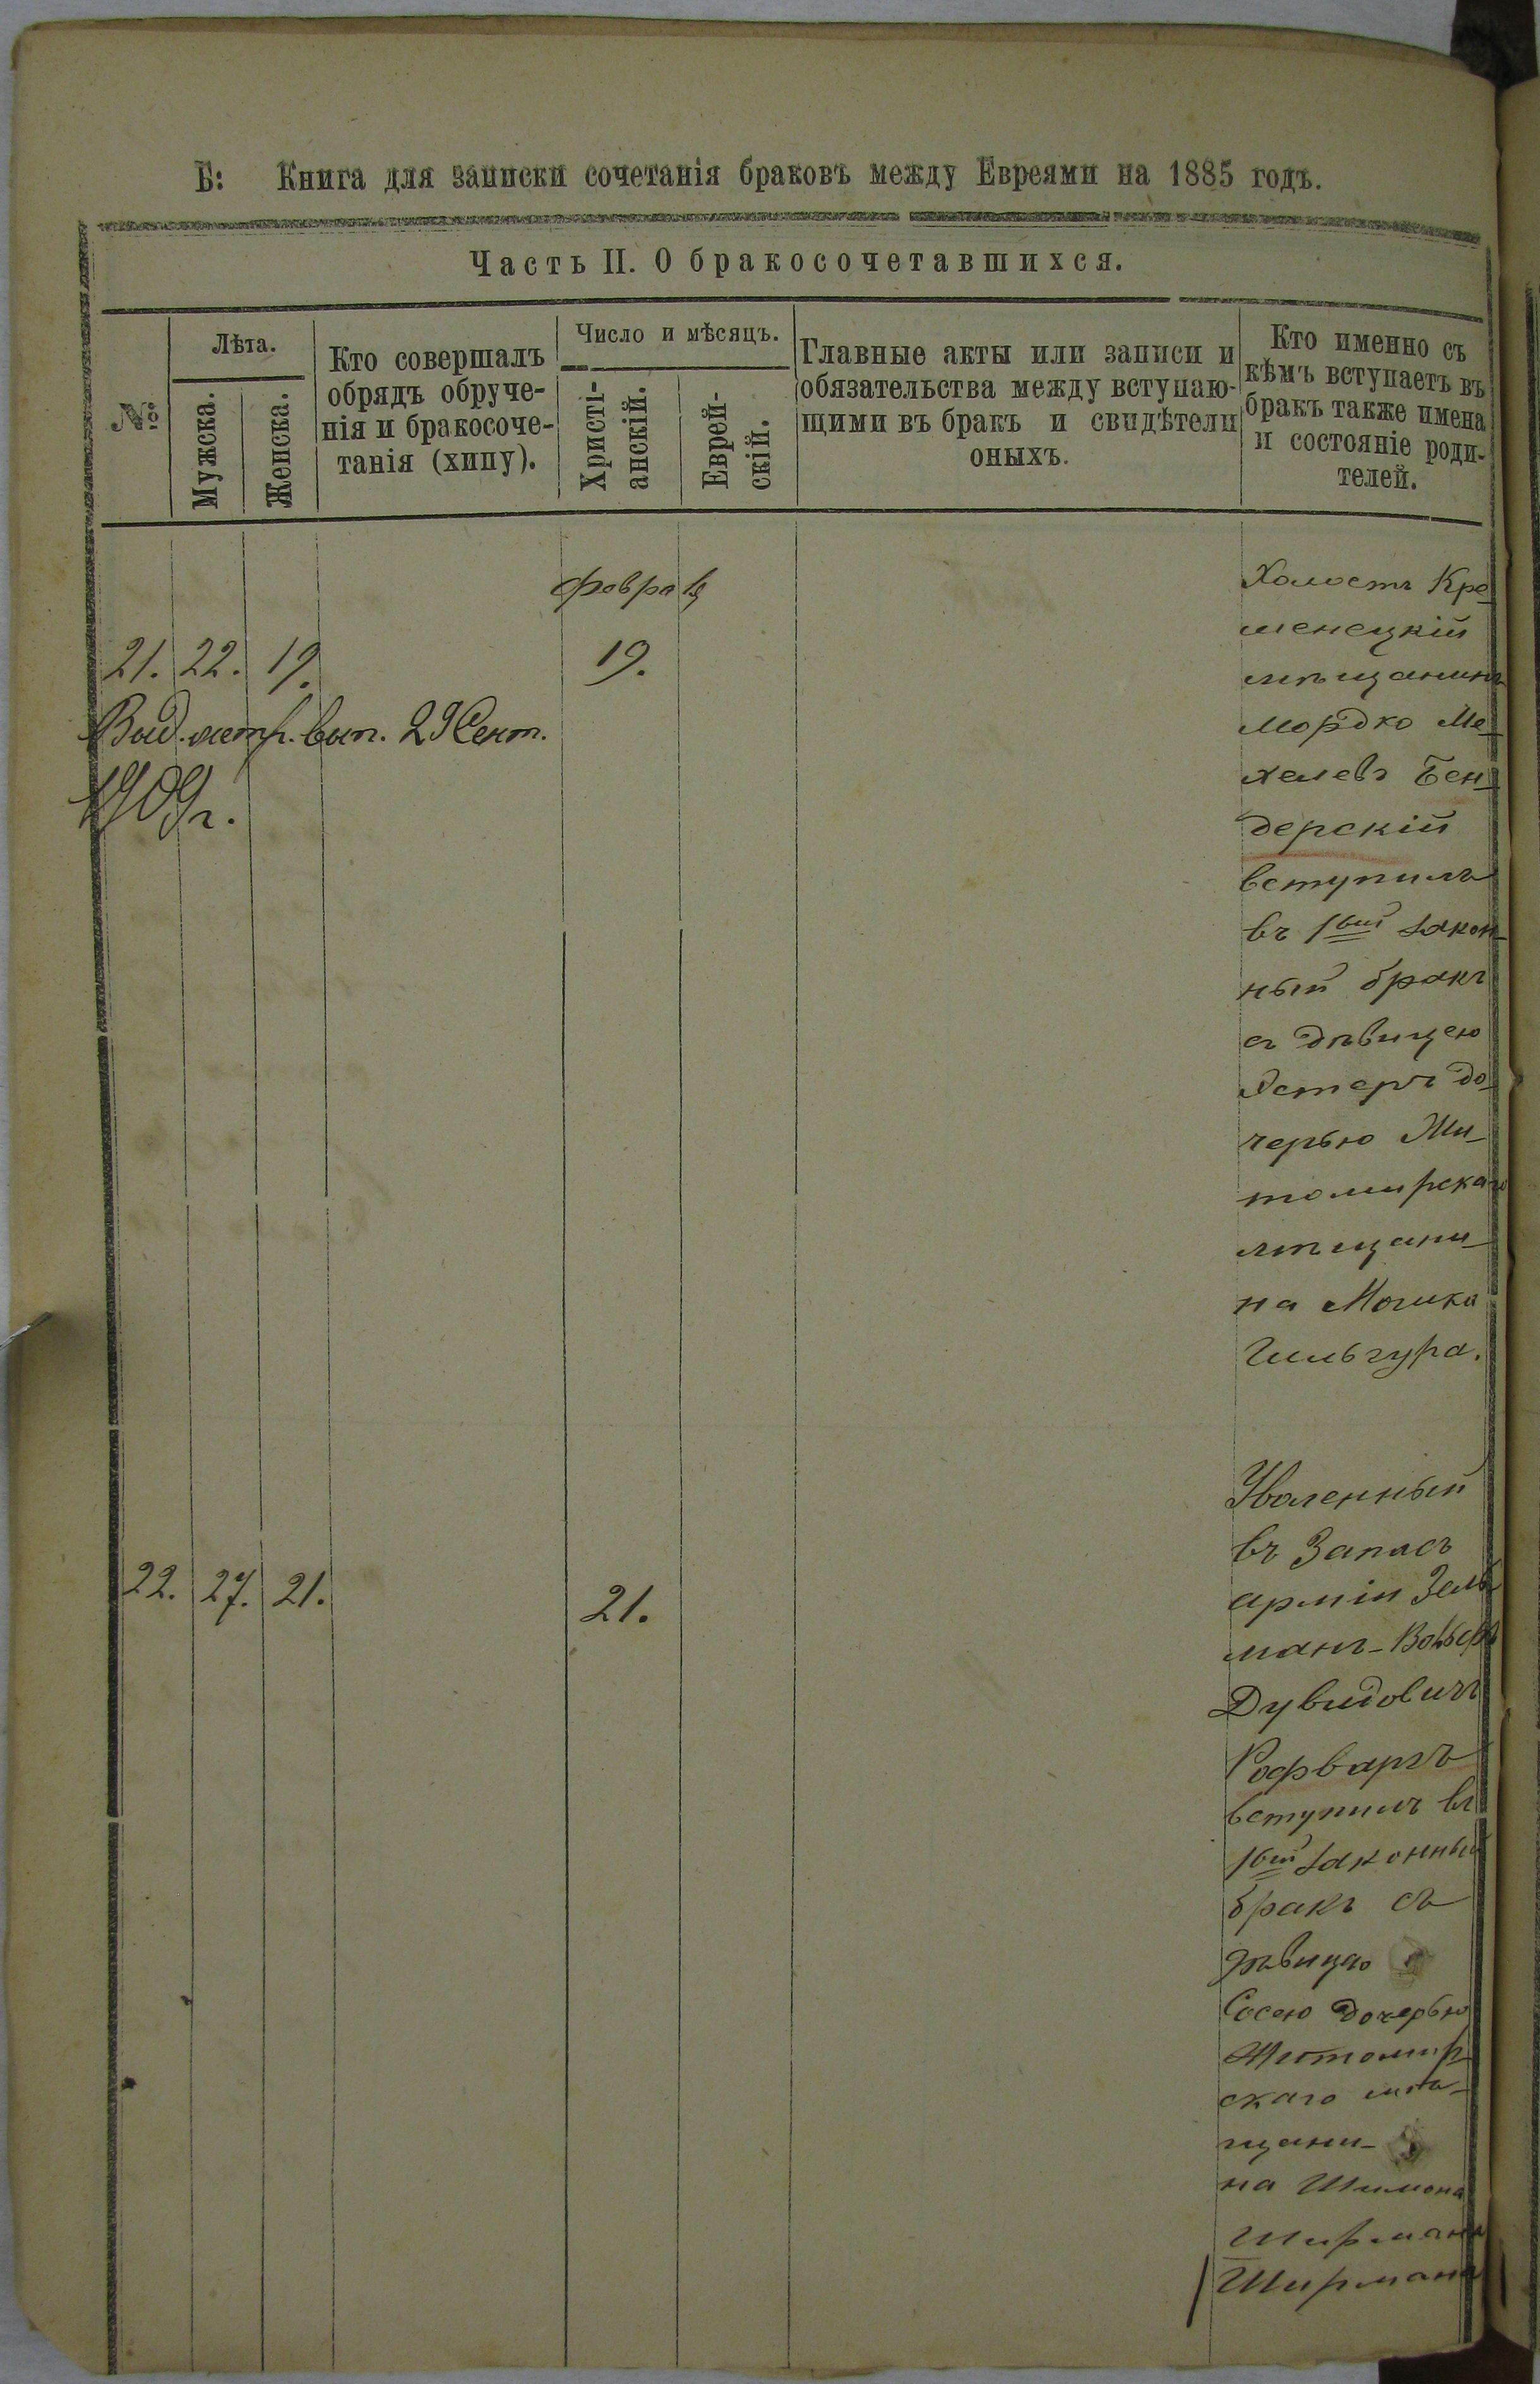 Б: Книга для записки сочетанія браковъ между Евреями на 1885 годъ.
Часть II. О бракосочетавшихся.
№
Лѣта.
Мужска.
Женска.
Кто совершалъ
обрядъ обруче-
нія и бракосоче-
танія (хипу).
Число и мѣсяцъ.
Христі-
анскій.
Еврей-
скій.
Главные акты или записи и
обязательства между вступаю-
щими въ бракъ и свидѣтели
оныхъ.
Кто именно съ
кѣмъ вступаетъ въ
бракъ также имена
и состояніе роди-
телей.
Февраля
21. 22. 19. 19.
Выд. метр. вып. 29 Сент.
1909 г.
Холостъ Кре-
менецкій
мѣщанинъ
Мордко Ме-
хелевъ Бен-
дерскій
вступилъ
въ 1вый закон-
ный бракъ
съ дѣвицею
Эстеръ до-
черью Жи-
томирскаго
мѣщани-
на Мошка
Гильгура.
22. 27. 21. 21.
Уволенный
въ Запасъ
арміи Зель
манъ-Вольфъ
Дувидовичъ
Рофваргъ
вступилъ въ
1вый законный
бракъ съ
дѣвицею
Сосею дочерью
Житомир-
скаго мѣ-
щани-
на Шимона
Ширмана
Ширмана